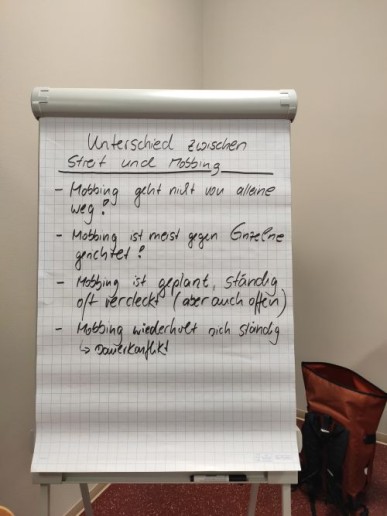 Unterschied zwischen
Streit und Mobbing
- Mobbing geht nicht von alleine
weg!
- Mobbing ist meist gegen Einzelne
gerichtet!
- Mobbing ist geplant, ständig
oft verdeckt (aber auch offen)
- Mobbing wiederholt sich ständig
↳ Dauerkonflikt